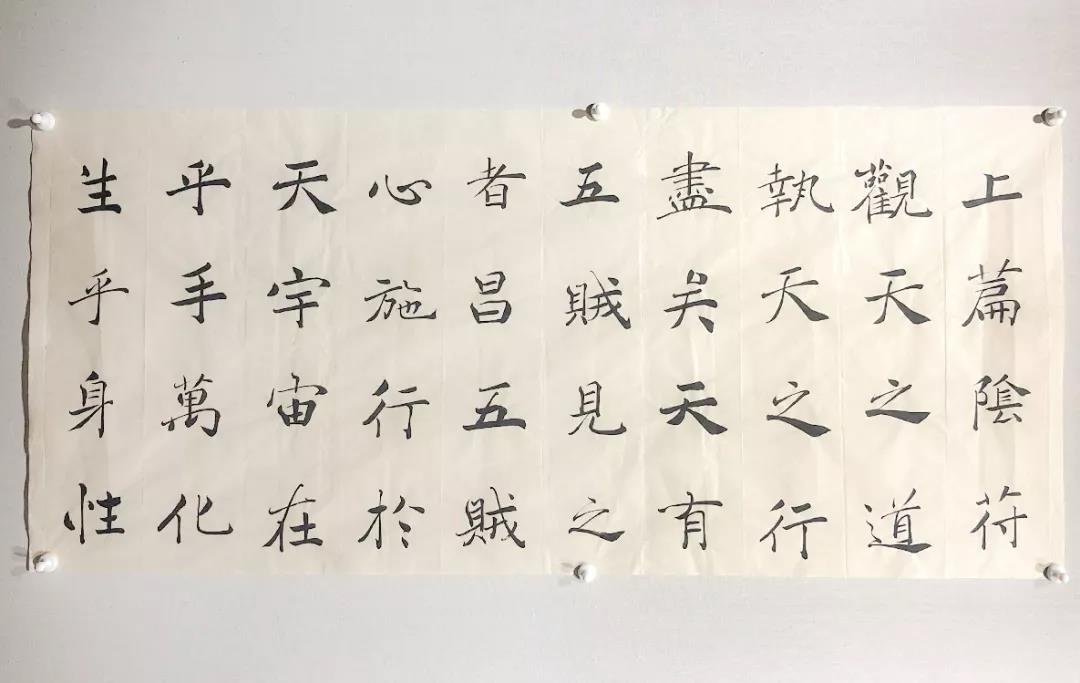 上篇陰符
觀天之道
執天之行
盡矣天有
五賊見之
者昌五賊
心施行於
天宇宙在
乎手萬化
生乎身性